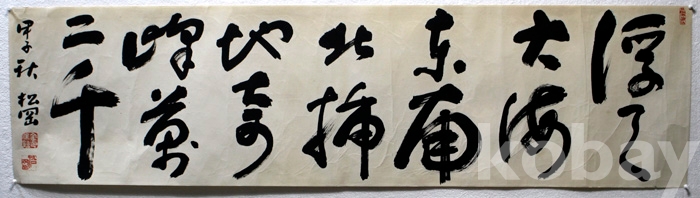 浮天
大海
東南
北揷
地奇
峰萬
二千
甲子秋 松岡
kobay